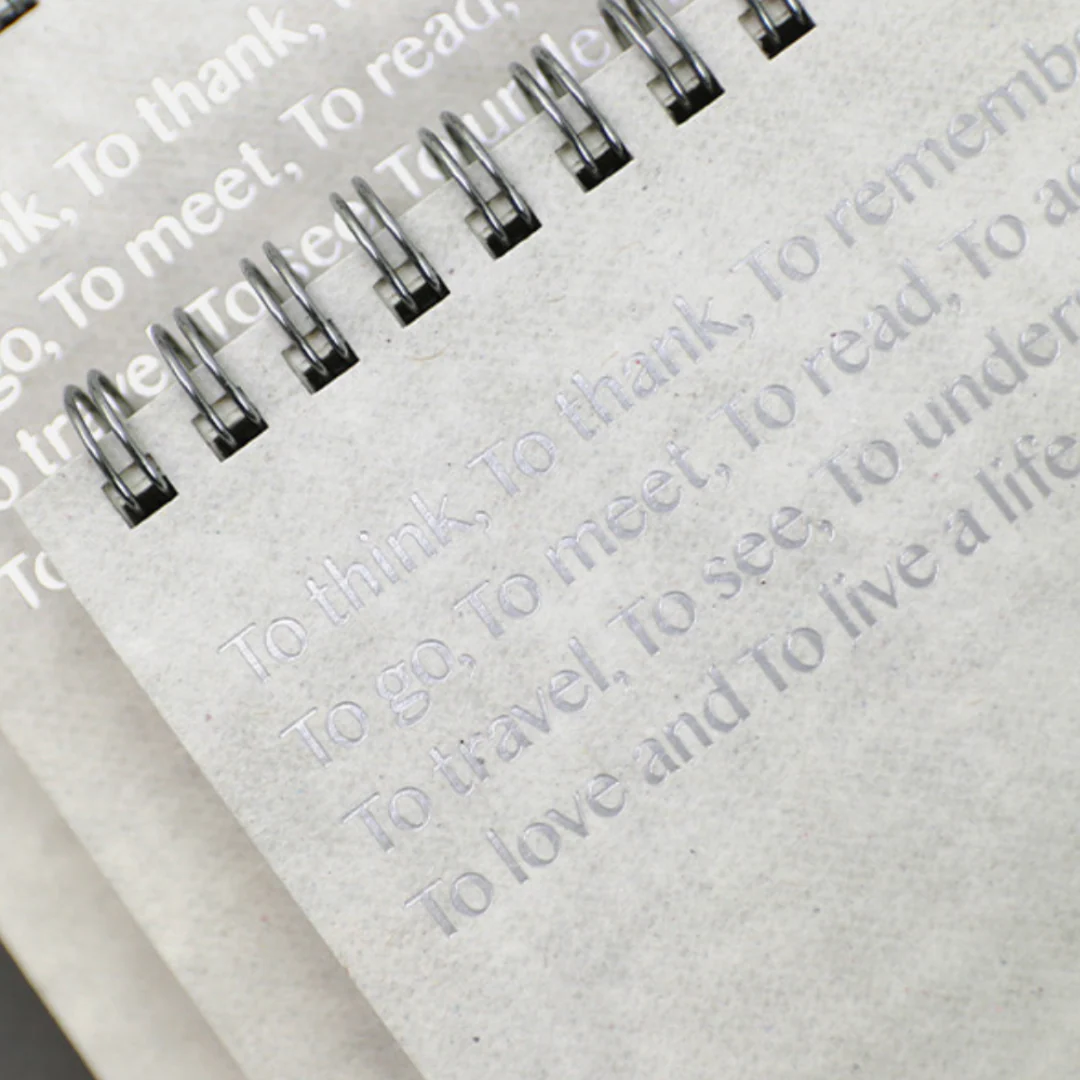 To thank,
nk, To thank,
go, To meet, To read,
To travel, To see, To unde
To
To think, To thank, To remembe
To go, To meet, To read, To ac
To travel, To see, To under
To love and To live a life